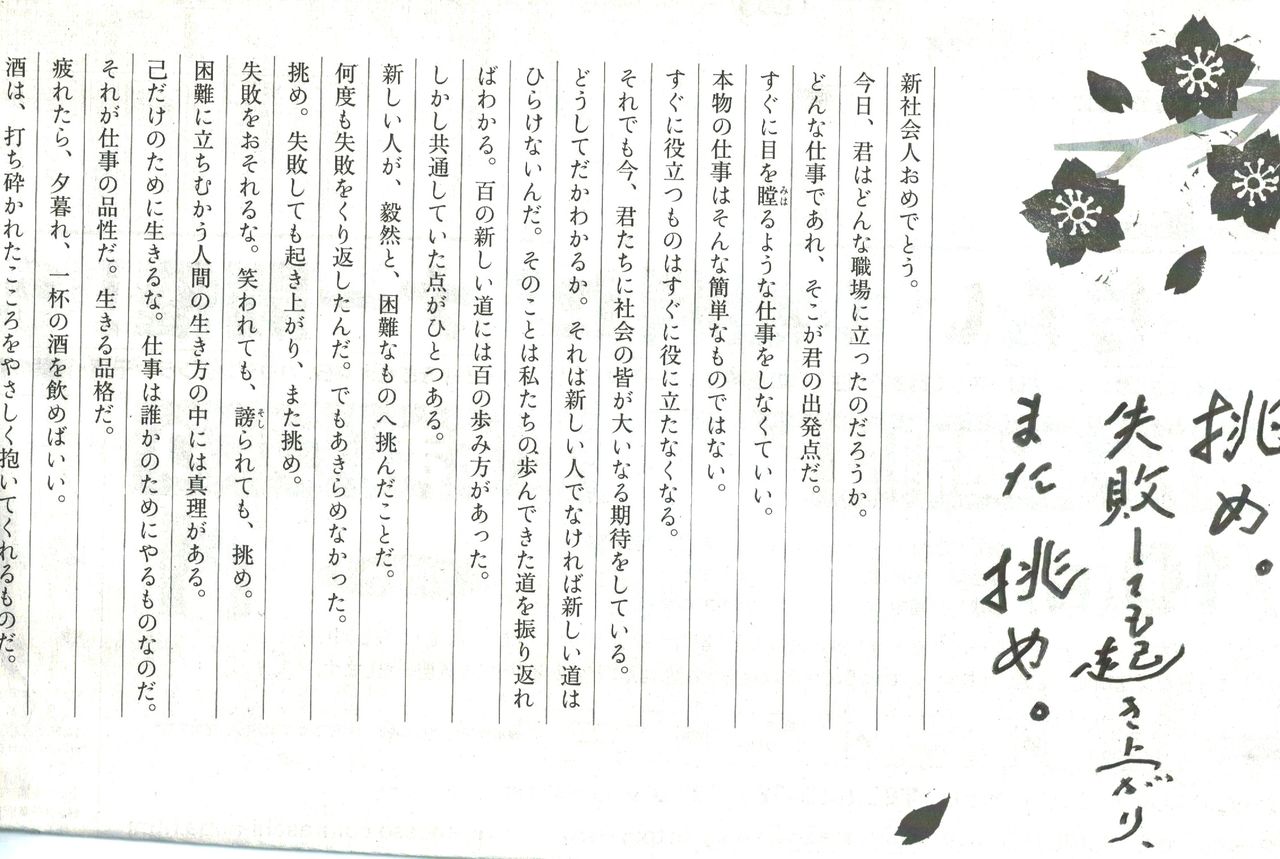 挑め。
失敗しても起き上がり、
また挑め。
新社会人おめでとう。
今日、君はどんな職場に立ったのだろうか。
どんな仕事であれ、そこが君の出発点だ。
すぐに目を瞠るような仕事をしなくていい。
みは
本物の仕事はそんな簡単なものではない。
すぐに役立つものはすぐに役に立たなくなる。
それでも今、君たちに社会の皆が大いなる期待をしている。
どうしてだかわかるか。それは新しい人でなければ新しい道は
ひらけないんだ。そのことは私たちの歩んできた道を振り返れ
ばわかる。百の新しい道には百の歩み方があった。
しかし共通していた点がひとつある。
新しい人が、毅然と、困難なものへ挑んだことだ。
何度も失敗をくり返したんだ。でもあきらめなかった。
挑め。失敗しても起き上がり、また挑め。
失敗をおそれるな。笑われても、謗られても、挑め。
そし
困難に立ちむかう人間の生き方の中には真理がある。
己だけのために生きるな。仕事は誰かのためにやるものなのだ。
それが仕事の品性だ。生きる品格だ。
疲れたら、夕暮れ、一杯の酒を飲めばいい。
酒は、打ち砕かれたこころをやさしく抱いてくれるものだ。